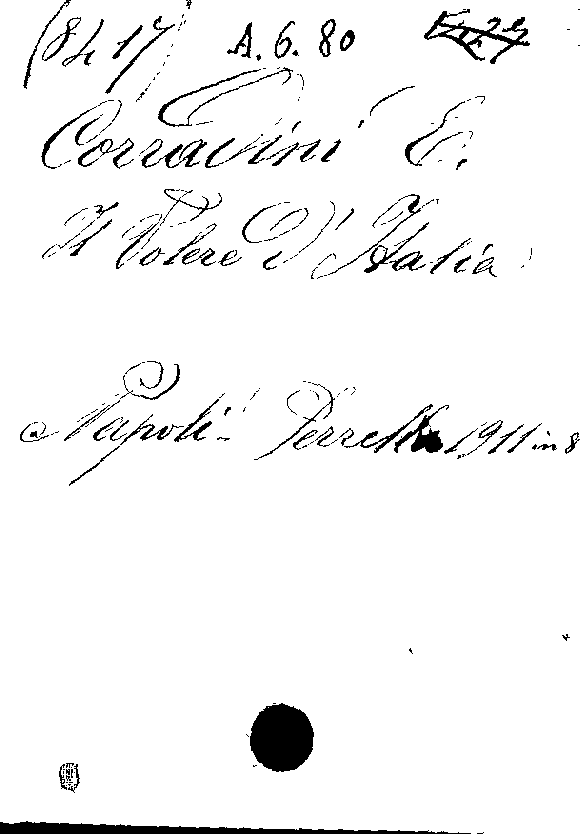 (8417) A. 6. 80
Corradini E.
Il Volere D'Italia
Napoli - Perrella 1911 in 8